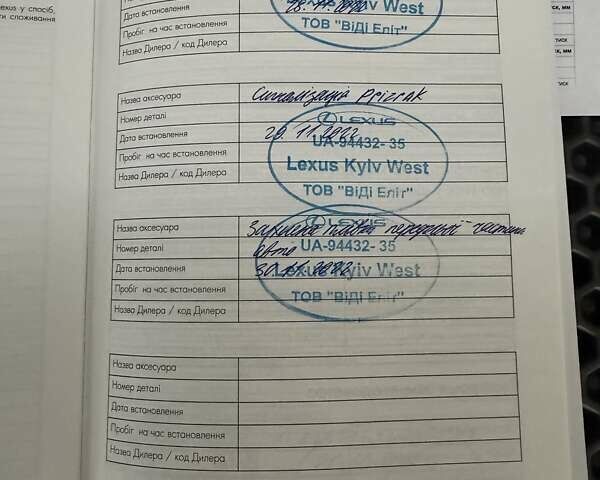 exus у спосіб,
ти споживання
Дата встановлення
Пробіг на час встановлення
Назва Дилера / код Дилера
Kyiv West
ТОВ "ВіДі Еліт"
Назва аксесуара Сигналізація Prizrak
Номер деталі
Дата встановлення 29.11.2022
Пробіг на час встановлення
Назва Дилера / код Дилера
LEXUS
UA-94432- 35
Lexus Kyiv West
ТОВ "ВіДі Еліт"
Назва аксесуара Захисна плівка передньої частини
Номер деталі авто
Дата встановлення 30.11.2022
Пробіг на час встановлення
Назва Дилера / код Дилера
LEXUS
UA-94432- 35
Lexus Kyiv West
ТОВ "ВіДі Еліт"
Назва аксесуара
Номер деталі
Дата встановлення
Пробіг на час встановлення
Назва Дилера / код Дилера